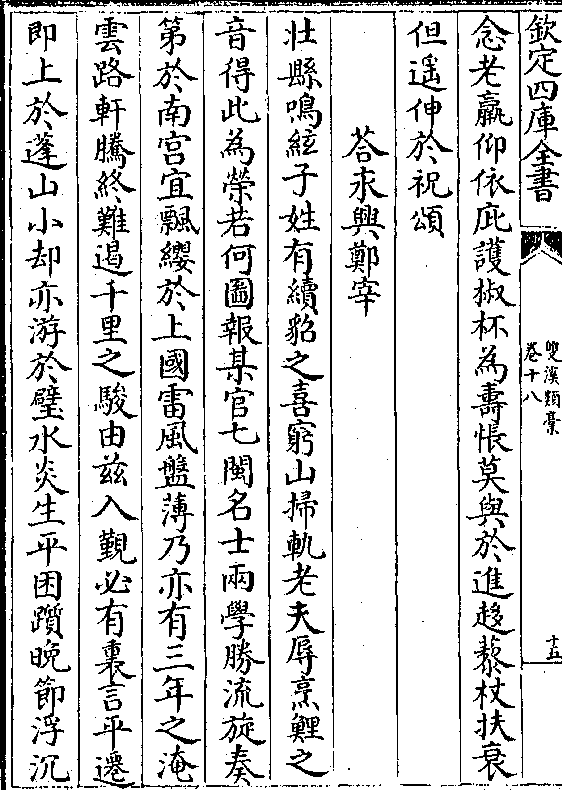 欽定四庫全書
雙溪類稾
卷十八
十五
念老羸仰依庇護椒杯為壽悵莫與於進趍藜杖扶衰
但遥伸於祝頌
荅永興鄭宰
壯縣鳴絃子姓有續貂之喜窮山掃軌老夫辱烹鯉之
音得此為榮若何圖報某官七閩名士兩學勝流旋奏
第於南宫宜飄纓於上國雷風盤薄乃亦有三年之淹
雲路軒騰終難遏千里之駿由兹入覲必有褒言平遷
即上於蓬山小却亦游於璧水炎生平困躓晚節浮沉